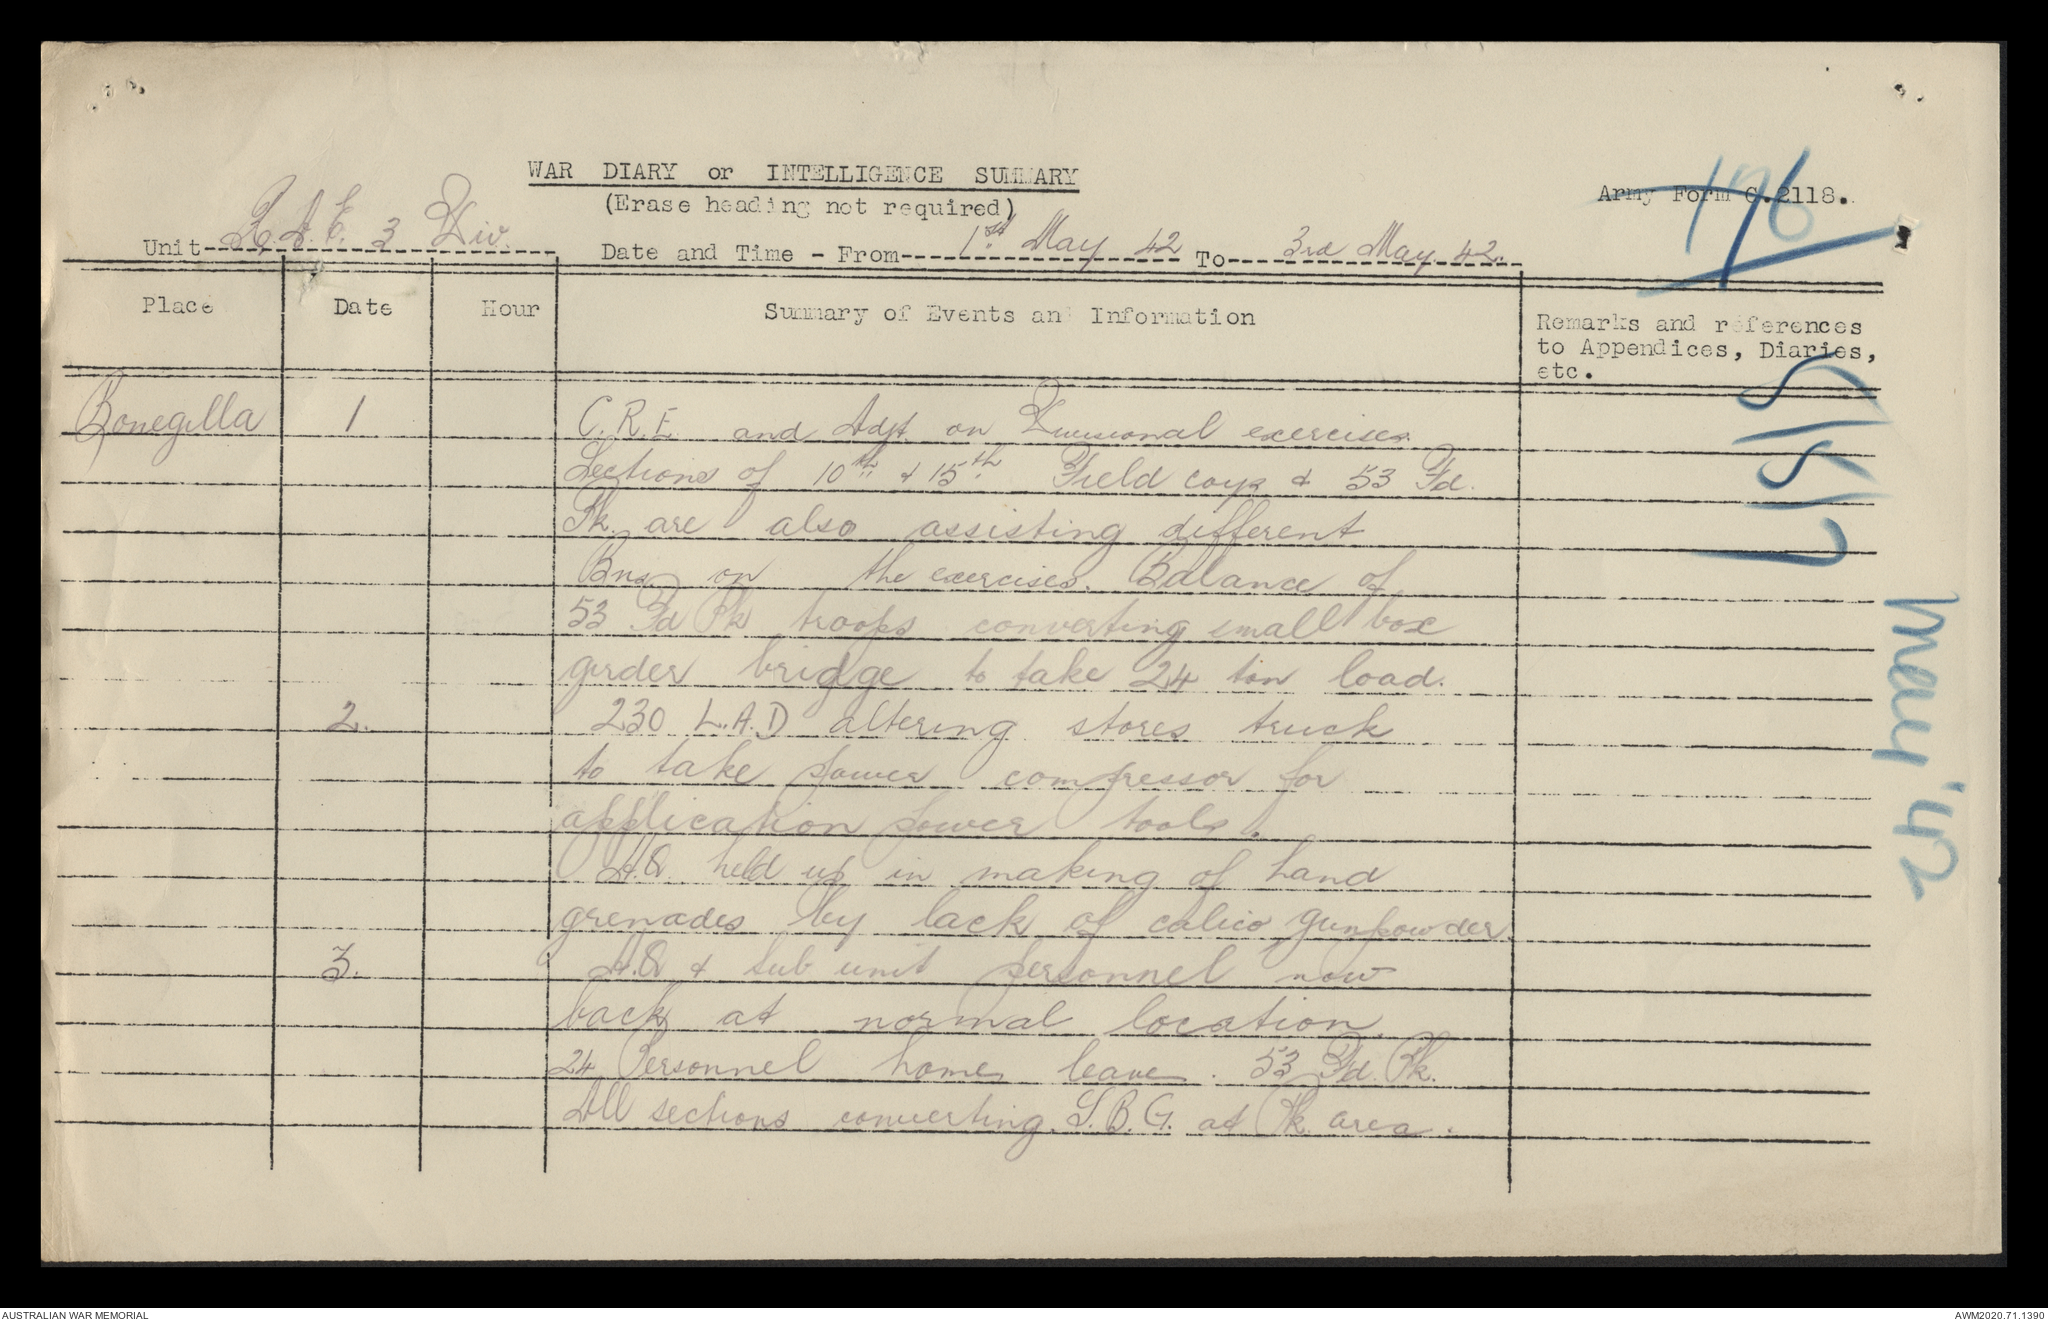 WAR DIARY or INTELLIGENCE SUMMARY
(Erase heading not required)
Army Form C.2118.
176
Unit R.A.E. 3 Div.
Date and Time - From 1st May 42 To 3rd May 42.
Place Date Hour Summary of Events and Information
Remarks and references
to Appendices, Diaries,
etc.
Bonegilla 1 C.R.E. and Adjt. on Divisional exercises.
Sections of 10th & 15th Field coys & 53 Fd.
Pk. are also assisting different
Bns on the exercises. Balance of
53 Fd Pk troops converting small box
girder bridge to take 24 ton load.
2. 230 L.A.D altering stores truck
to take power compressor for
application power tools.
H.Q. held up in making of hand
grenades by lack of calico gunpowder.
3. H.Q & sub unit personnel now
back at normal location.
24 Personnel home leave. 53 Fd. Pk.
All sections converting S.B.G. at Pk. area.
5/5/17
May '42
AUSTRALIAN WAR MEMORIAL
AWM2020.71.1390